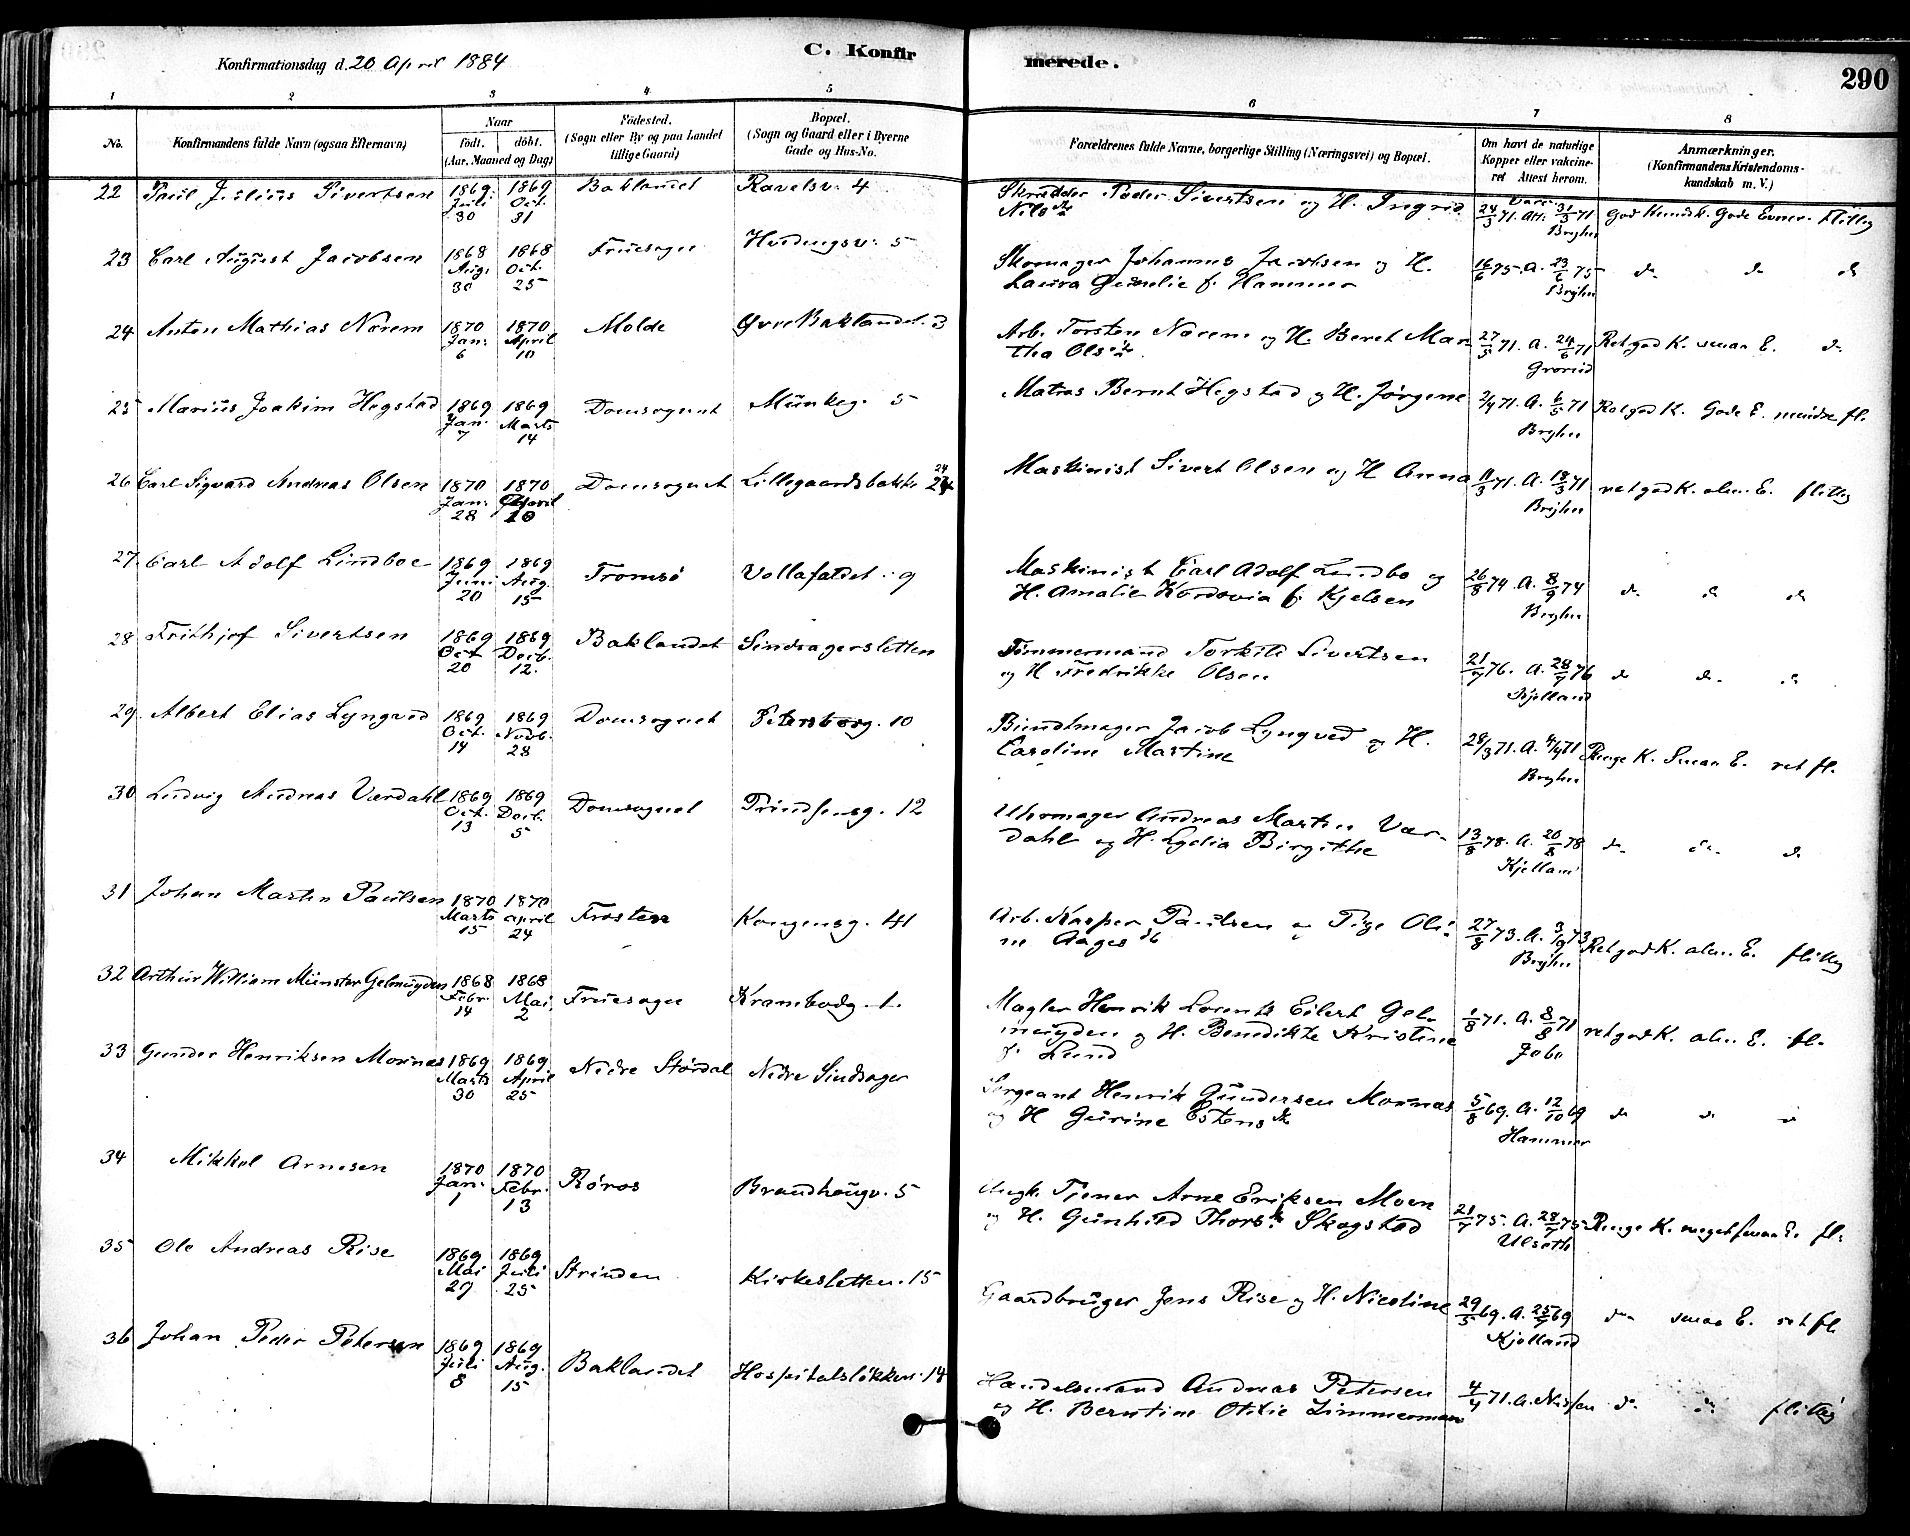 Konfirmationsdag d. 20 April 1884
C. Konfir
merede.
290
1 2 3 4 5 6 7 8
No.
Konfirmandens fulde Navn (ogsaa Efternavn)
Naar
født. døbt.
(Aar, Maaned og Dag)
Fødested.
(Sogn eller By og paa Landet
tillige Gaard)
Bopæl.
(Sogn og Gaard eller i Byerne
Gade og Hus-No.
Forældrenes fulde Navne, borgerlige Stilling (Næringsvei) og Bopæl.
Om havt de naturlige
Kopper eller vakcine-
ret Attest herom.
Anmærkninger.
(Konfirmandens Kristendoms-
kundskab m. V.)
22 Paul Julius Sivertsen 1869 Juli 30 1869 Oct. 31 Baklandet 4
Skrædder Peder Sivertsen og H. Ingrid
Nilsdr 24/3 71. Att. 31/3 71 Bryhn God Kundsk. Gode Evner. Flittig
23 Carl August Jacobsen 1868 Aug. 30 1868 Oct. 25 Fruesogn 5
Skomager Johannes Jacobsen og H.
Laura f. Hammer 16/6 75. A. 23/6 75 Bryhn do do do
24 Anton Mathias Nærem 1870 Jan. 6 1870 April 10 Molde Øvre Baklandet. 3
Arb. Torsten Nærem og H. Beret Mar
tha Olsdr. 27/5 71. A. 24/6 71 Ret god K. smaa E. do
25 Marius Joakim Hegstad 1869 Jan. 7 1869 Marts 14 Domsognet Munkeg. 5
Matros Bernt Hegstad og H. Jørgene 2/4 71. A. 6/5 71 Bryhn Ret god K. Gode E. mindre fl.
26 Carl Sigvard Andreas Olsen 1870 Jan. 28 1870 April 10 Domsognet Lillegaardsbakke 24
Maskinist Sivert Olsen og H Anna 11/3 71. A. 18/3 71 Bryhn ret god K. alm. E. flittig
27 Carl Adolf Lindboe 1869 Juni 20 1869 Aug. 15 Tromsø Vollafaldet. 9
Maskinist Carl Adolf Lindbo og
H. Amalie f. Kjelsen 26/8 74 A. 8/9 74 Bryhn do do do
28 Frithjof Sivertsen 1869 Oct 20 1869 Decb. 12. Baklandet Sindsagersletten
Tømmermand Torkild Sivertsen
og H Fredrikke Olsen 21/7 76. A. 28/7 76 Kjelland do do do
29 Albert Elias Lyngved 1869 Oct. 14 1869 Novb. 28 Domsognet Petersborg. 10
Bundtmager Jacob Lyngved og H.
Caroline Martine 28/3 71. A. 4/4 71 Bryhn Ringe K. Smaa E. ret fl.
30 Ludvig Andreas Værdahl 1869 Oct. 13 1869 Decb. 5 Domsognet Prindsensg. 12
Uhrmager Andreas Martin Vær-
dahl og H. Lydia Birgithe 13/8 78. A. 20/8 78 Kjelland do do do
31 Johan Martin Paulsen 1870 Marts 15 1870 April 24 Frosten Kongensg. 41
Arb. Kasper Paulsen og Pige Oli-
ne Aagesdr 27/8 73. A. 3/9 73 Bryhn Ret god K. alm. E. flittig
32 Arthur William Münster Gelmuyden 1868 Febr. 14 1868 Mai 2 Fruesogn Krambodg. 1.
Mægler Henrik Lorentz Eilert Gel-
muyden og H. Bendikte Kristine
f. Lund 1/8 71. A. 8/8 71 ret god K. alm. E. fl.
33 Gunder Henriksen Mornæs 1869 Marts 30 1869 April 25 Nedre Stördal Nedre Sindsager
Sergeant Henrik Gundersen Mornæs
og H Gurine Estensdr 5/8 69. A. 12/10 69 Hammer do do do
34 Mikkel Arnesen 1870 Jan. 1 1870 Febr. 13 Røros Brandhaugv. 5
Tjener Arne Eriksen Moen
og H. Gunhild Thorsdr Skogstad 21/7 75. A. 28/7 75 Ulseth Ringe K. meget smaa E. fl.
35 Ole Andreas Rise 1869 Mai 29 1869 Juli 25 Strinden Kirkesletten. 15
Gaardbruger Jens Rise og H. Nicoline 29/5 69. A. 25/7 69 Kjelland do smaa E. ret fl.
36 Johan Peder Petersen 1869 Juli 8 1869 Aug. 15 Baklandet Hospitalsløkken. 14
Handelsmand Andreas Petersen
og H. Berntine Otilie Zimmerman 4/4 71. A. Nissen do do flittig